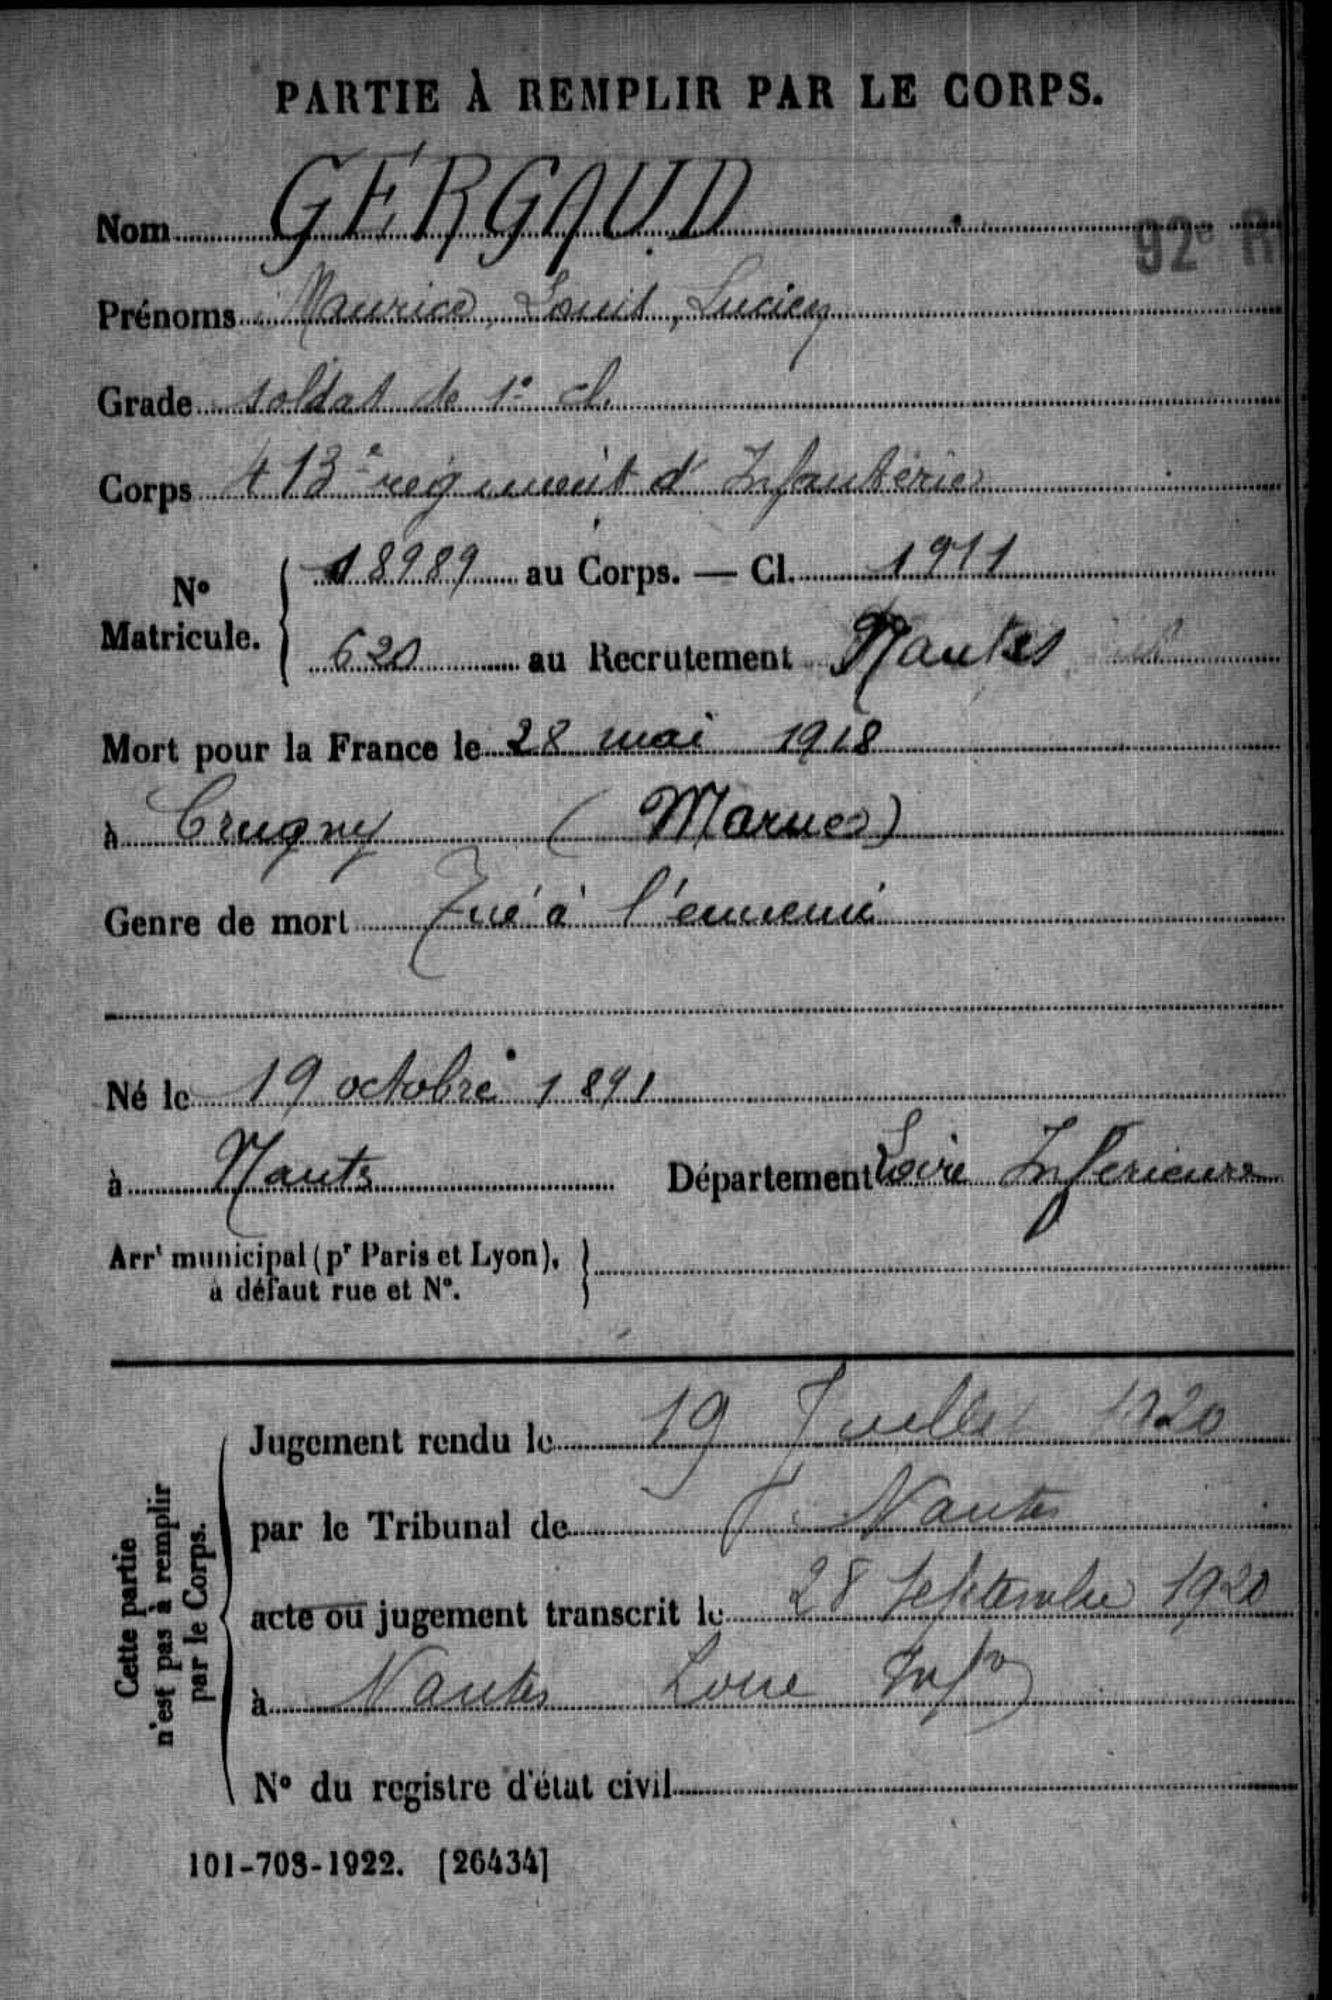 PARTIE À REMPLIR PAR LE CORPS.
Nom GERGAUD
92e R
Prénoms Maurice, Louis, Lucien
Grade soldat de 1e cl.
Corps 413e régiment d'Infanterie
No Matricule. { 18989 au Corps. — Cl. 1911
620 au Recrutement Nantes
Mort pour la France le 28 mai 1918
à Crugny (Marne)
Genre de mort Tué à l'ennemi
Né le 19 octobre 1891
à Nantes Département Loire Inférieure
Arrt municipal (pr Paris et Lyon), }
à défaut rue et No.
Cette partie n'est pas à remplir par le Corps.
Jugement rendu le 19 Juillet 1920
par le Tribunal de Nantes
acte ou jugement transcrit le 28 Septembre 1920
à Nantes Loire Infre
No du registre d'état civil
101-708-1922. [26434]